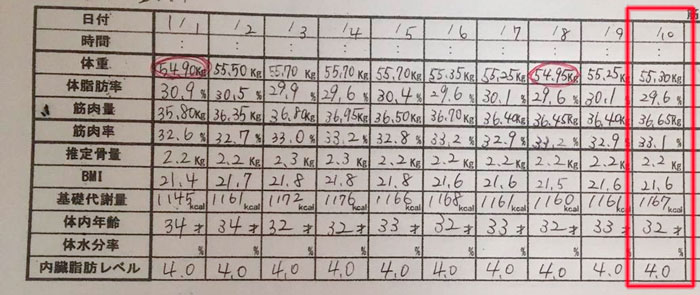 日付 1/1 1/2 1/3 1/4 1/5 1/6 1/7 1/8 1/9 1/10
時間 : : : : : : : : : :
体重 54.90Kg 55.50Kg 55.70Kg 55.70Kg 55.70Kg 55.35Kg 55.25Kg 54.95Kg 55.25Kg 55.30Kg
体脂肪率 30.9% 30.5% 29.9% 29.6% 30.4% 29.6% 30.1% 29.6% 30.1% 29.6%
筋肉量 35.80Kg 36.35Kg 36.80Kg 36.95Kg 36.50Kg 36.70Kg 36.40Kg 36.45Kg 36.40Kg 36.65Kg
筋肉率 32.6% 32.7% 33.0% 33.2% 32.8% 33.2% 32.9% 33.2% 32.9% 33.1%
推定骨量 2.2Kg 2.2Kg 2.3Kg 2.3Kg 2.2Kg 2.2Kg 2.2Kg 2.2Kg 2.2Kg 2.2Kg
BMI 21.4 21.7 21.8 21.8 21.8 21.6 21.6 21.5 21.6 21.6
基礎代謝量 1145kcal 1161kcal 1172kcal 1176kcal 1166kcal 1168kcal 1161kcal 1160kcal 1161kcal 1167kcal
体内年齢 34才 34才 32才 32才 33才 32才 33才 32才 33才 32才
体水分率 % % % % % % % % % %
内臓脂肪レベル 4.0 4.0 4.0 4.0 4.0 4.0 4.0 4.0 4.0 4.0